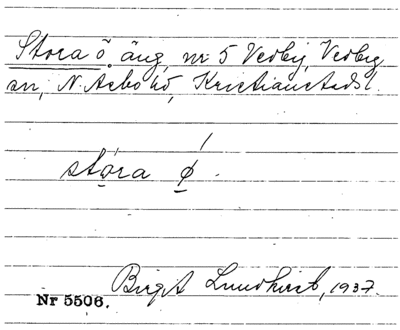 Stora ö, äng, nr 5 Vedby, Vedby
sn, N. Åsbo hd, Kristianstads l.
stọ́ra ǿ̱.
Birgit Lundkvist, 1937.
Nr 5506.